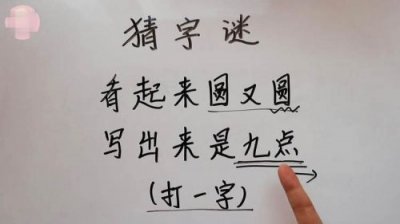 猜字谜
看起来圆又圆
写出来是九点
(打一字)